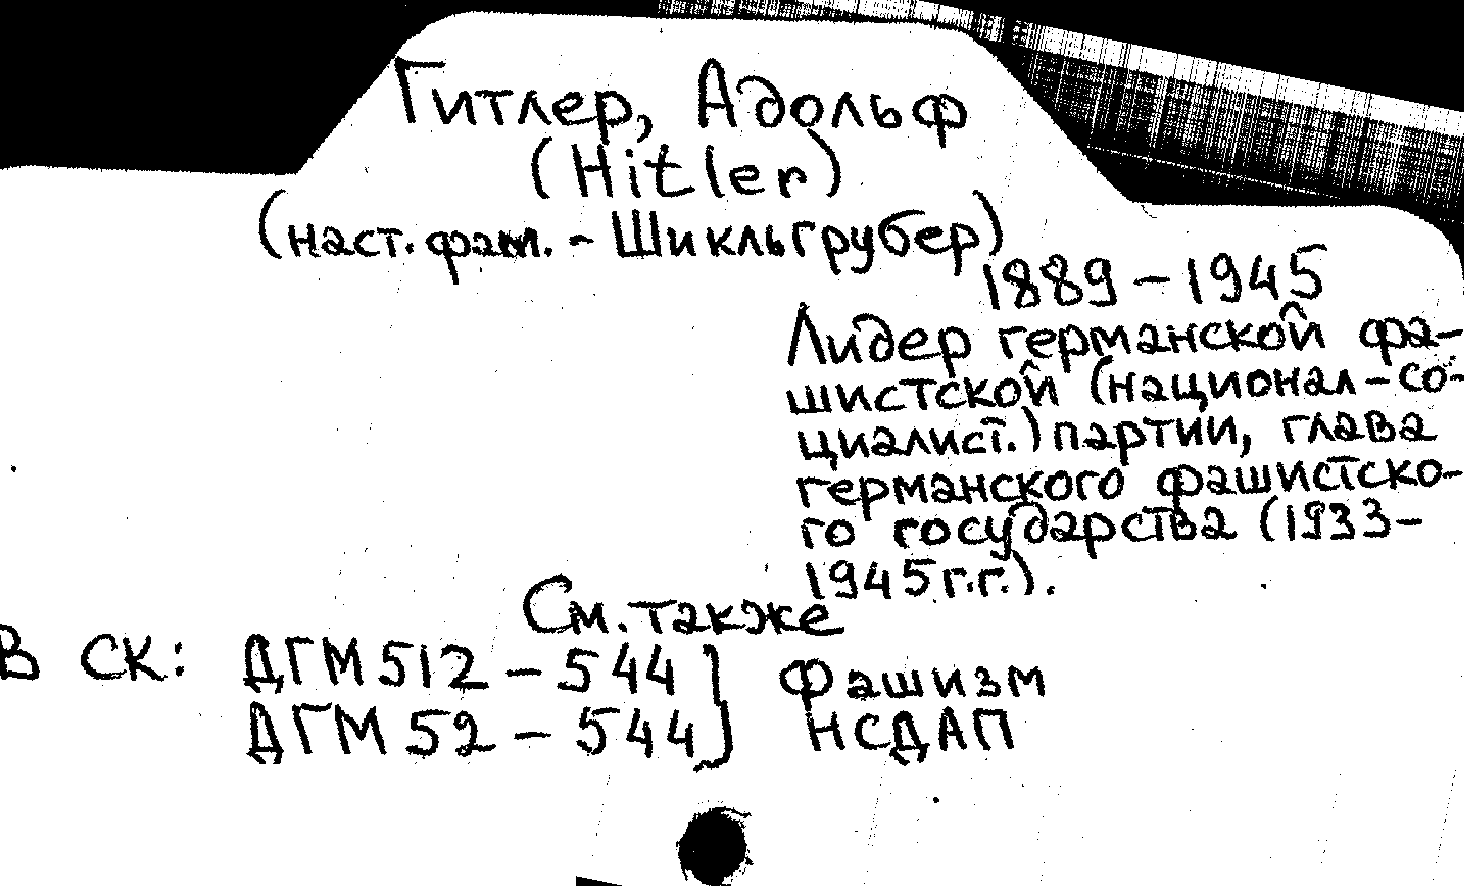 Гитлер, Адольф
(Hitler)
(наст. фам. - Шикльгрубер)
1889 - 1945
Лидер германской фа-
шистской (национал-со-
циалист.) партии, глава
германского фашистско-
го государства (1933-
1945 г.г.).
См. также
В СК: ДГМ 512 - 544 } Фашизм
ДГМ 52 - 544 } НСДАП